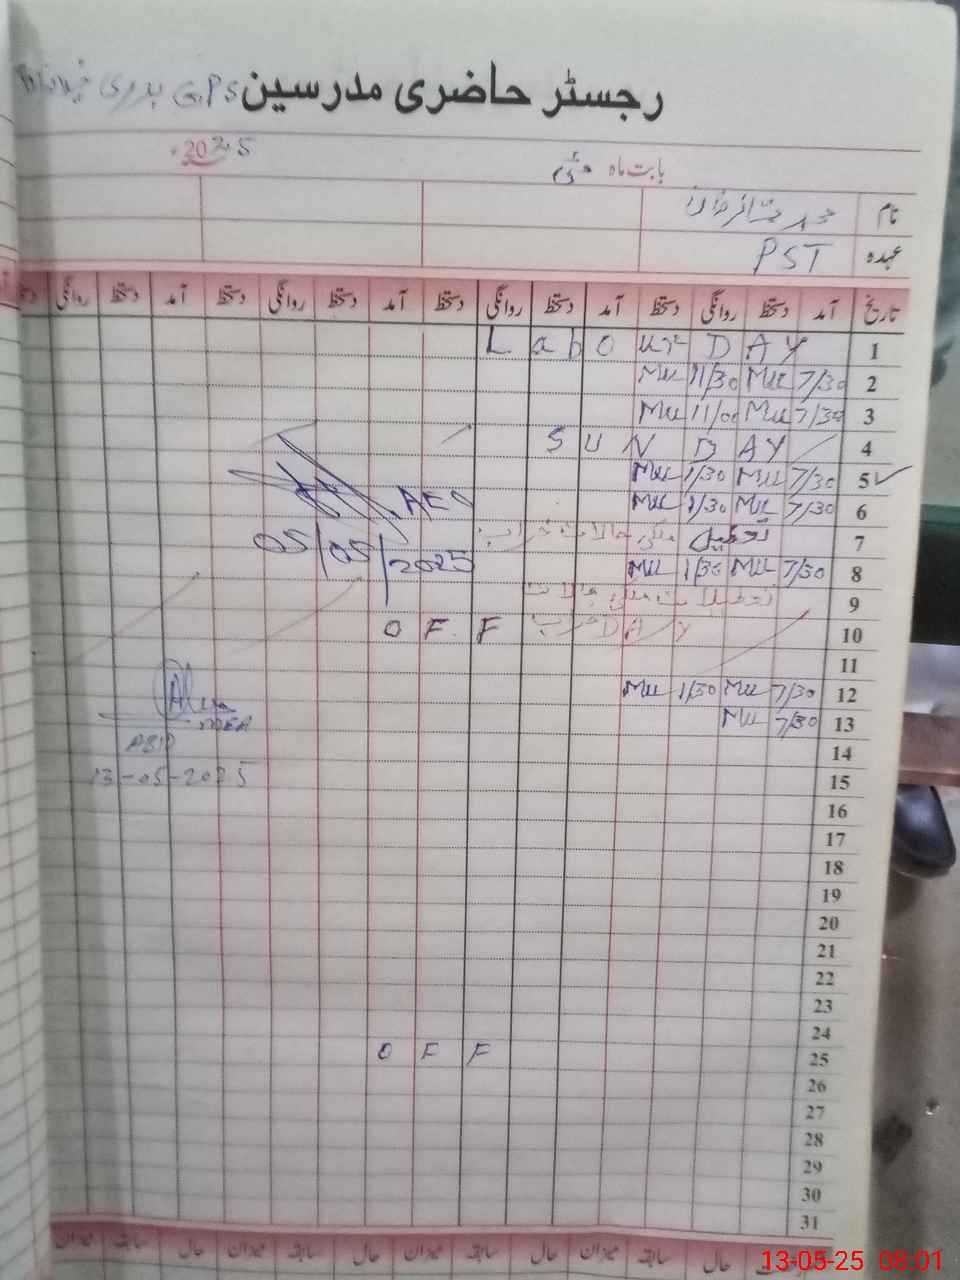 رجسٹر حاضری مدرسین G.PS بدری
بابت ماہ مئی 2025
نام محمد
عہدہ PST
تاریخ آمد دستخط روانگی دستخط آمد دستخط روانگی دستخط آمد دستخط روانگی دستخط آمد دستخط روانگی
1 Labour DAY
2 7/30 Mu 11/30 Mu
3 7/30 Mu 11/00 Mu
4 SUNDAY
5 7/30 Mu 1/30 Mu
6 7/30 Mu 1/30 Mu AEO
7 تعطیل ملکی حالات خراب 05/05/2025
8 7/30 Mu 1/30 Mu
9 تعطیلات ملکی حالات
10 خراب DAY OFF
11
12 7/30 Mu 1/30 Mu
13 7/30 Mu MEA
14
15 13-05-2025
16
17
18
19
20
21
22
23
24
25 OFF
26
27
28
29
30
31
حال سابقہ میزان حال سابقہ میزان حال سابقہ میزان حال سابقہ میزان
13-05-25 08:01